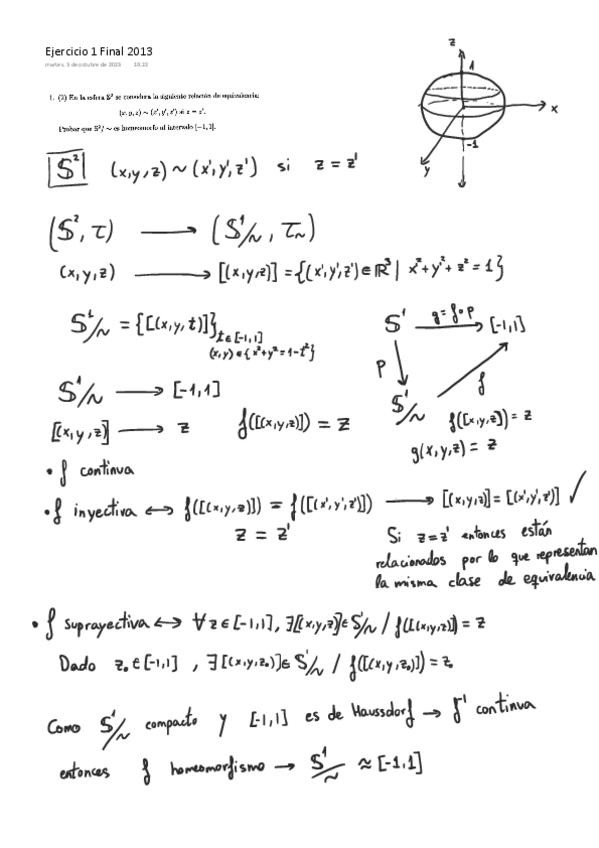 Ejercicio 1 Final 2013
martes, 3 de octubre de 2023 10:22
1. (2) En la esfera S² se considera la siguiente relación de equivalencia:
(x, y, z) ~ (x', y', z') si z = z'.
Probar que S²/~ es homeomorfo al intervalo [-1, 1].
z
1
x
-1
y
S² (x,y,z) ~ (x',y',z') si z = z'
(S², τ) ⟶ (S¹/~, τ~)
(x,y,z) ⟶ [(x,y,z)] = {(x',y',z') ∈ ℝ³ | x²+y²+z² = 1}
S¹/~ = {[(x,y,t)]} t∈[-1,1]
(x,y) ∈ {x²+y²=1-t²}
S¹ g=f∘p ⟶ [-1,1]
p
f
S¹/~
f([x,y,z)) = z
g(x,y,z) = z
S¹/~ ⟶ [-1,1]
[(x,y,z)] ⟶ z f([(x,y,z)]) = z
• f continua
• f inyectiva ⟷ f([(x,y,z)]) = f([(x',y',z')]) ⟶ [(x,y,z)] = [(x',y',z')] ✓
z = z'
Si z=z' entonces están
relacionados por lo que representan
la misma clase de equivalencia
• f suprayectiva ⟷ ∀z∈[-1,1], ∃[(x,y,z)]∈S¹/~ / f([(x,y,z)]) = z
Dado z₀∈[-1,1], ∃[(x,y,z₀)]∈S¹/~ / f([(x,y,z₀)]) = z₀
Como S¹/~ compacto y [-1,1] es de Haussdorf → f⁻¹ continua
entonces f homeomorfismo → S¹/~ ≈ [-1,1]